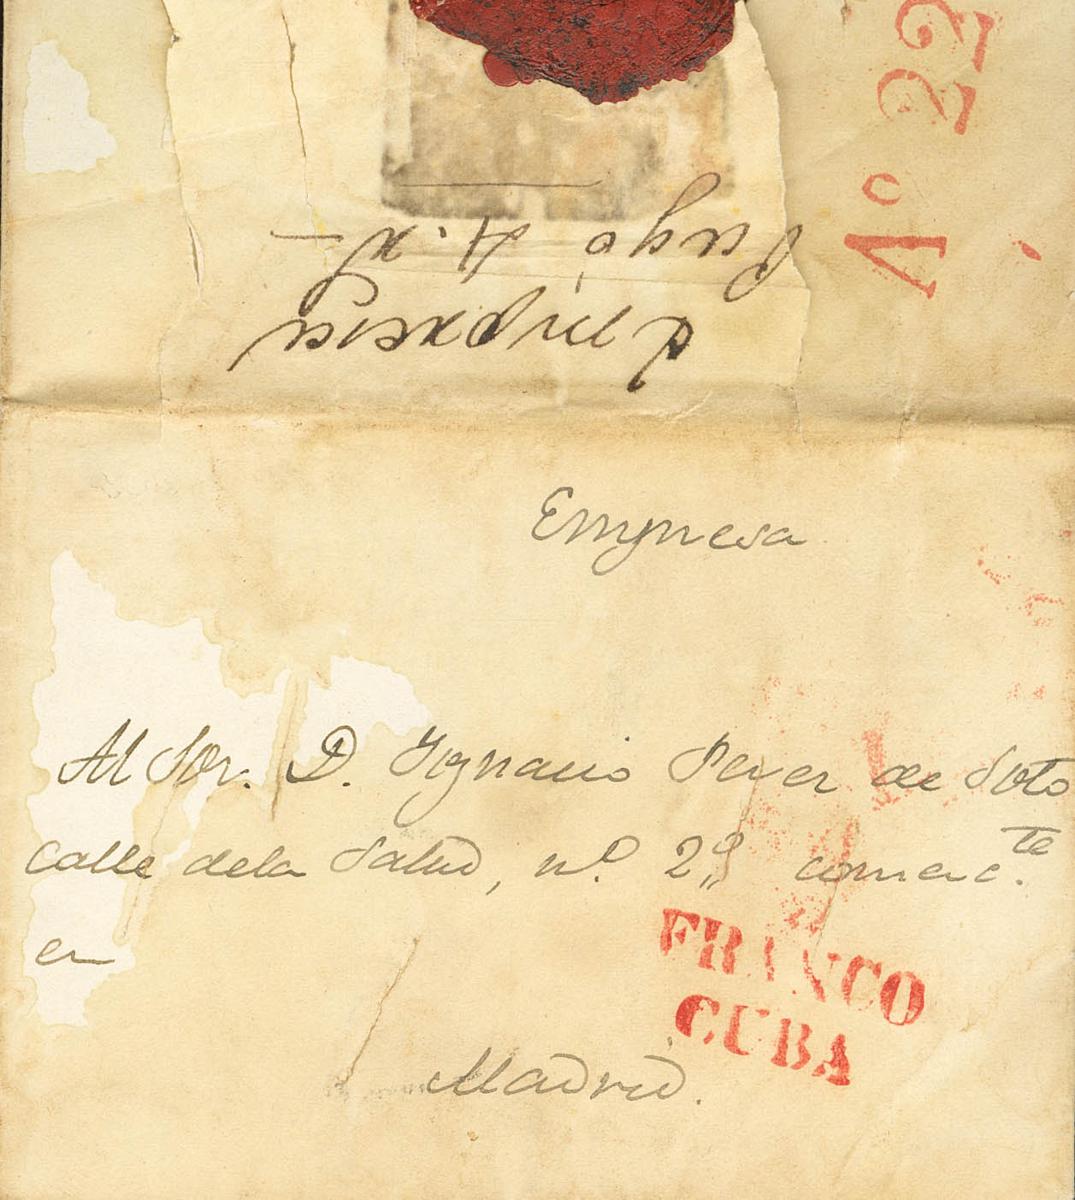 Aº 22
Empresa
Pagó 4. r
Empresa
Al Sor. D. Ygnacio Perez de Soto
calle dela Salud, nº. 2,, comerc.te
en
FRANCO
CUBA
Madrid.